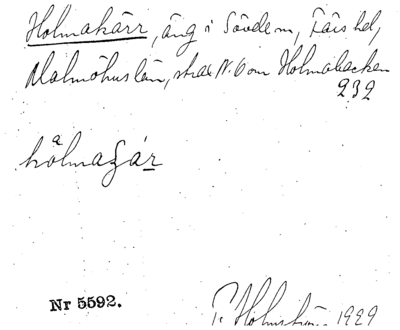 Holmakärr, äng i Sövde sn, Färs hd,
Malmöhus län, strax N.O om Holmabacken
232
hålmaʃár
Nr 5592.
P. Holmström 1929